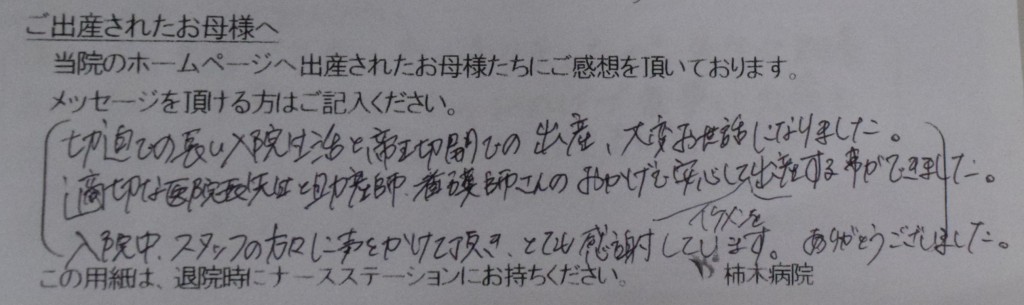 ご出産されたお母様へ
当院のホームページへ出産されたお母様たちにご感想を頂いております。
メッセージを頂ける方はご記入ください。
切迫での長い入院生活と帝王切開での出産、大変お世話になりました。
適切な 院長先生と助産師・看護師さんのおかげで安心して出産する事ができました。
入院中、スタッフの方々に声をかけて頂き、とても感謝しています。ありがとうございました。
この用紙は、退院時にナースステーションにお持ちください。 柿木病院